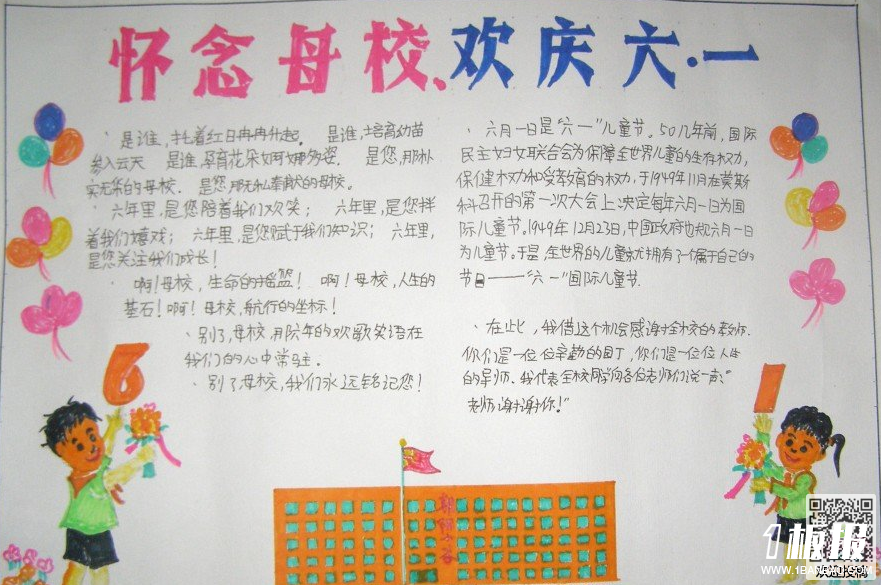 怀念母校、欢庆六·一
是谁，托着红日冉冉升起。 是谁，培育幼苗
参入云天 是谁，孕育花朵婀娜多姿. 是您，那朴
实无华的母校. 是您那无私奉献的母校。
六年里，是您陪着我们欢笑； 六年里，是您伴
着我们嬉戏； 六年里，是您赋于我们知识； 六年里，
是您关注我们成长！
啊！母校，生命的摇篮！ 啊！母校，人生的
基石！啊！母校，航行的坐标！
别了，母校，用陪年的欢歌笑语在
我们的心中常驻.
别了母校，我们永远铭记您！
六月一日是“六一”儿童节。50几年前，国际
民主妇女联合会为保障全世界儿童的生存权力，
保健权力和受教育的权力，于1949年11月在莫斯
科召开的第一次大会上决定每年六月一日为国
际儿童节。1949年12月23日，中国政府也规六月一日
为儿童节。于是，全世界的儿童就拥有了一个属于自己的
节日——“六一”国际儿童节.
在此，我借这个机会感谢全校的老师.
你们是一位位辛勤的园丁，你们是一位位人生
的导师、我代表全校同学向各位老师们说一声：“
老师谢谢你！”
6
1
1板报
WWW.1BANBAO.COM